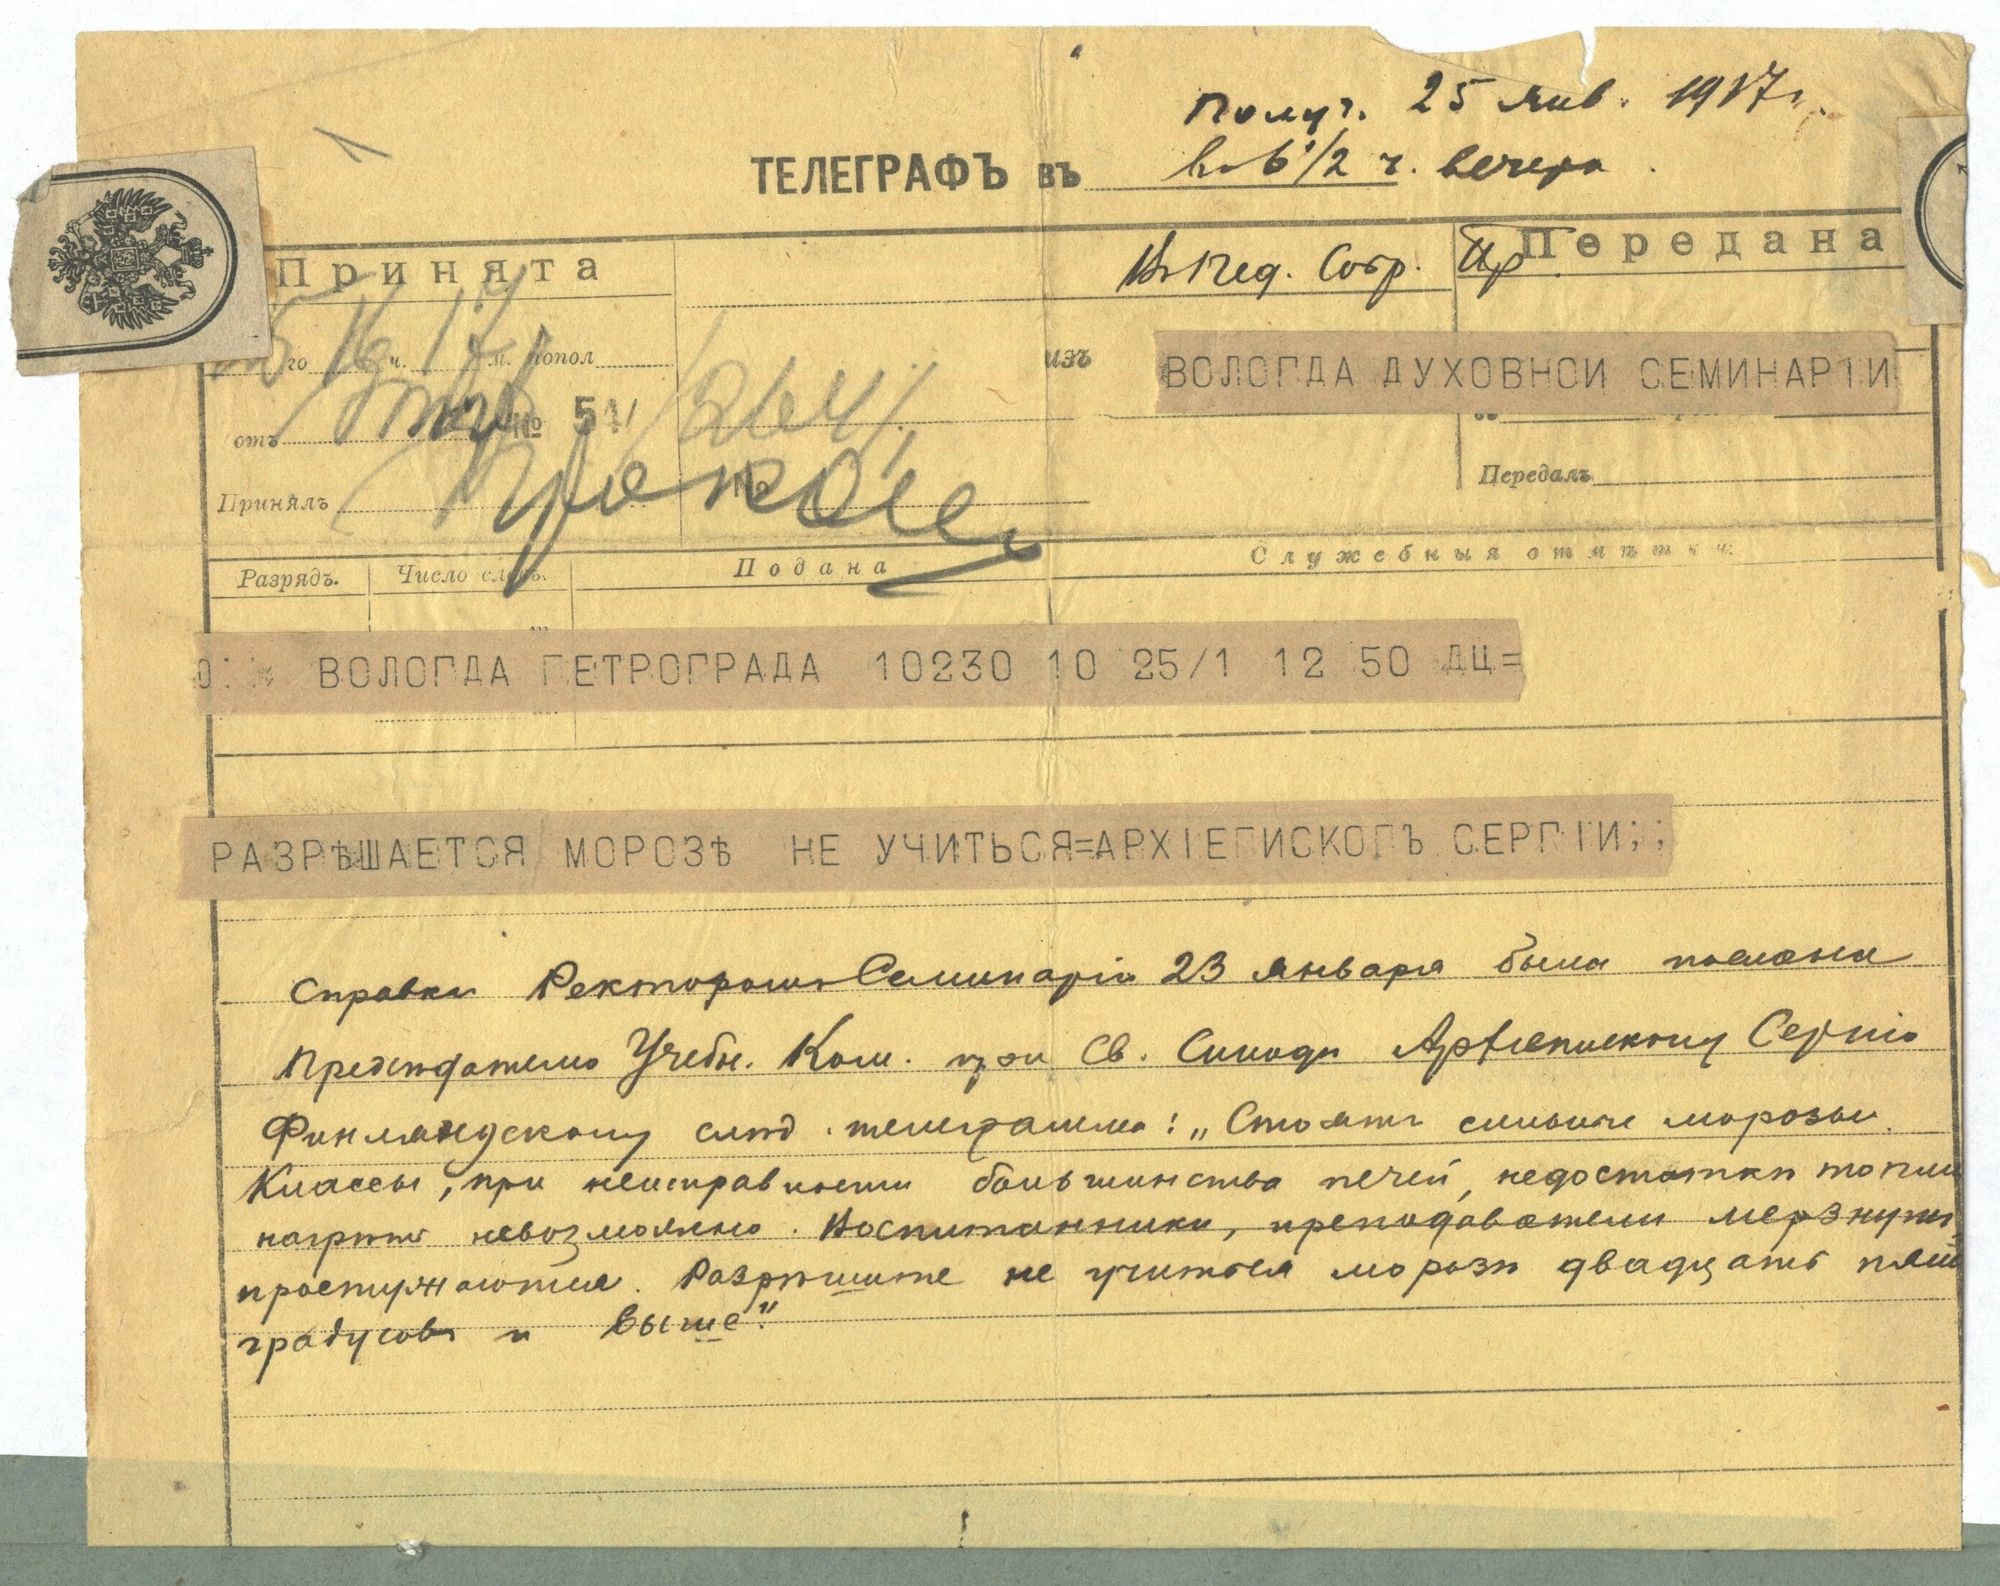 Получ. 25 янв. 1917 г.
ТЕЛЕГРАФЪ въ в 6 1/2 ч. вечера.
Принята
Въ Пед. Собр. Пр.
Передана
го ч. м. попол
изъ
ВОЛОГДА ДУХОВНОИ СЕМИНАРІИ
отъ № 51
Принялъ
№
Передалъ
Разрядъ. Число словъ. Подана Служебныя отмѣтки:
ВОЛОГДА ПЕТРОГРАДА 10230 10 25/1 12 50 ДЦ=
РАЗРѢШАЕТСЯ МОРОЗѢ НЕ УЧИТЬСЯ=АРХІЕПИСКОПЪ СЕРГІИ;;
Справка Ректоромъ Семинаріи 23 января была послана
Предсѣдателю Учебн. Ком. при Св. Синодѣ Архіепископу Сергію
Финляндскому слѣд. телеграмма: „Стоятъ сильные морозы.
Классы, при неисправности большинства печей, недостатки топли
нагрѣть невозможно. Воспитанники, преподаватели мерзнутъ,
простужаются. Разрѣшите не учиться морозы двадцать пять
градусовъ и выше."